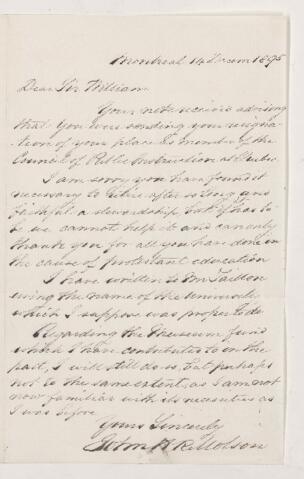 Montreal 14 Decem 1895
Dear Sir William
Your note received advising
that you were sending your resigna-
tion of your place as member of the
Council of Public Instruction at Quebec
I am sorry you have found it
necessary to retire after so long and
faithful a stewardship, but if it has to
be we cannot help it and can only
thank you for all you have done in
the cause of protestant education
I have written to Mr Tailton
using the name of the University
which I suppose was proper to do
Regarding the Museum fund
which I have contributed to in the
past, I will still do so, but perhaps
not to the same extent, as I am not
now familiar with its necessities as
I was before
Yours Sincerely
John H R Molson